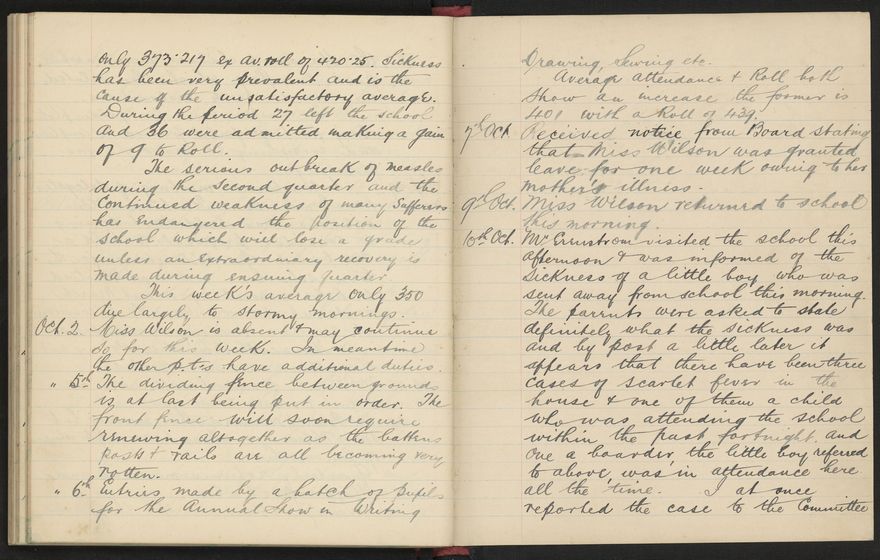 only 373·217 ex av. roll of 420·25. Sickness
has been very prevalent and is the
cause of the unsatisfactory average.
During the period 27 left the school
and 36 were admitted making a gain
of 9 to Roll.
The serious outbreak of measles
during the second quarter and the
continued weakness of many sufferers
has endangered the position of the
school which will lose a grade
unless an extraordinary recovery is
made during ensuing quarter
This week's average only 350
due largely to stormy mornings.
Oct. 2. Miss Wilson is absent & may continue
so for this week. In meantime
the other p.t.s have additional duties.
" 5th The dividing fence between grounds
is at last being put in order. The
front fence will soon require
renewing altogether as the battens
posts & rails are all becoming very
rotten.
" 6th Entries made by a batch of pupils
for the Annual Show in Writing
Drawing, Sewing etc.
Average attendance & Roll both
show an increase the former is
401 with a Roll of 439.
7th Oct. Received notice from Board stating
that Miss Wilson was granted
leave for one week owing to her
mother's illness.
9th Oct. Miss Wilson returned to school
this morning.
10th Oct. Mr visited the school this
afternoon & was informed of the
sickness of a little boy who was
sent away from school this morning.
The parents were asked to state
definitely what the sickness was
and by post a little later it
appears that there have been three
cases of scarlet fever in the
house & one of them a child
who was attending the school
within the past fortnight. And
one a boarder the little boy referred
to above, was in attendance here
all the time. I at once
reported the case to the Committee